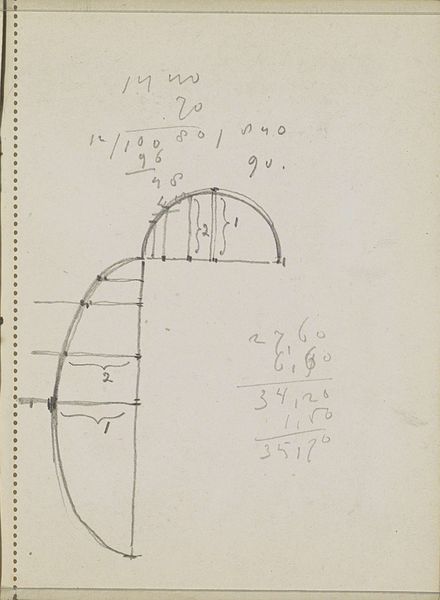 14 40
70
12/100 80/ 840
96
90.
48
2
1
2
1
27,60
6,60
34,20
1,50
35,70